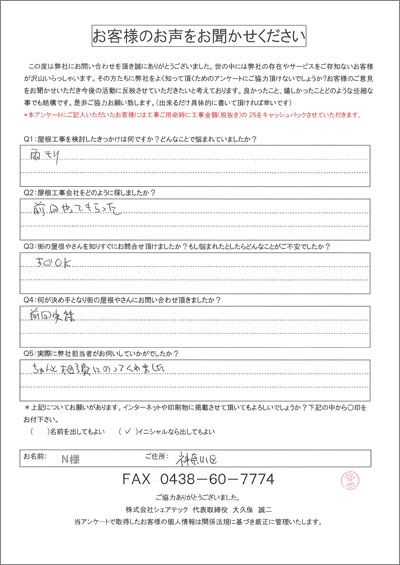 お客様のお声をお聞かせください
この度は弊社にお問い合わせを頂き誠にありがとうございました。世の中には弊社の存在やサービスをご存知ないお客様
が沢山いらっしゃいます。その方たちに弊社をよく知って頂くためのアンケートにご協力頂けないでしょうか?お客様のご意見
をお聞かせいただき今後の活動に反映させていただきたいと考えております。良かったこと、嬉しかったことどのような些細な
事でも結構です。是非ご協力お願い致します。(出来るだけ具体的に書いて頂ければ幸いです)
*本アンケートにご記入いただいたお客様には工事ご用命時に工事金額(税抜き)の2%をキャッシュバックさせていただきます。
Q1:屋根工事を検討したきっかけは何ですか?どんなことで悩まれていましたか?
雨モリ
Q2:屋根工事会社をどのように探しましたか?
前回やってもらった
Q3:街の屋根やさんを知りすぐにお問合せ頂けましたか?もし悩まれたとしたらどんなことがご不安でしたか?
すぐOK
Q4:何が決め手となり街の屋根やさんにお問い合わせ頂きましたか?
前回実績
Q5:実際に弊社担当者がお伺いしていかがでしたか?
ちゃんと相談にのってくれました
*上記についてお願いがあります。インターネットや印刷物に掲載させて頂いてもよろしいでしょうか?下記の中から〇印を
お付下さい。
( )名前を出してもよい (✓)イニシャルなら出してもよい
お名前: N様 ご住所: 神奈川区
FAX 0438-60-7774
ご協力ありがとうございました。
株式会社シェアテック 代表取締役 大久保 誠二
当アンケートで取得したお客様の個人情報は関係法規に基づき厳正に管理いたします。